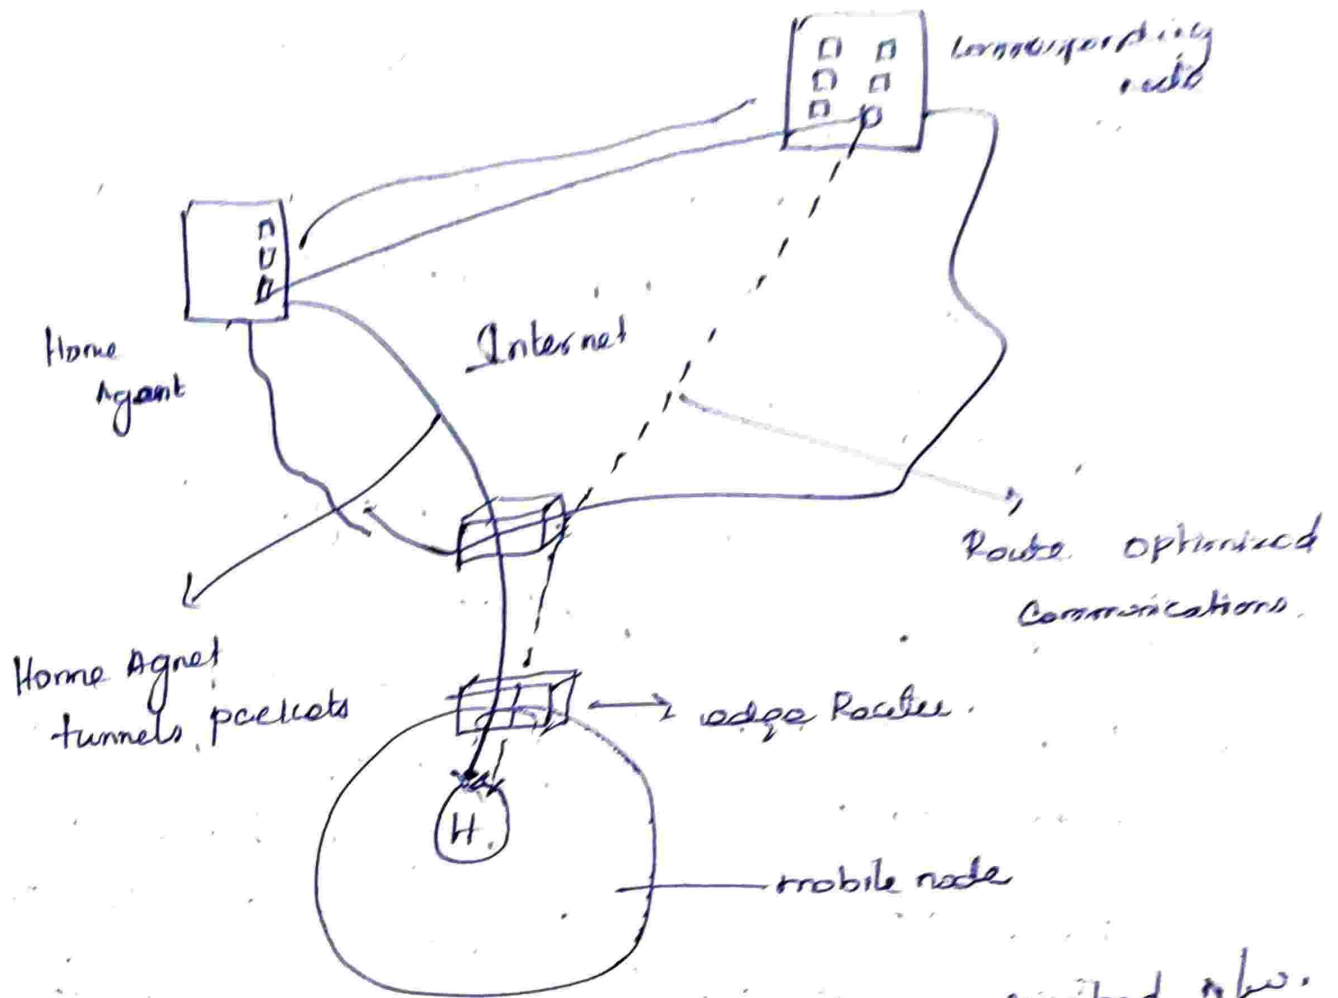 Corresponding
node
Home
Agent
Internet
Route Optimized
Communications.
Home Agnet
tunnels packets
edge Router.
H
mobile node
n/w.